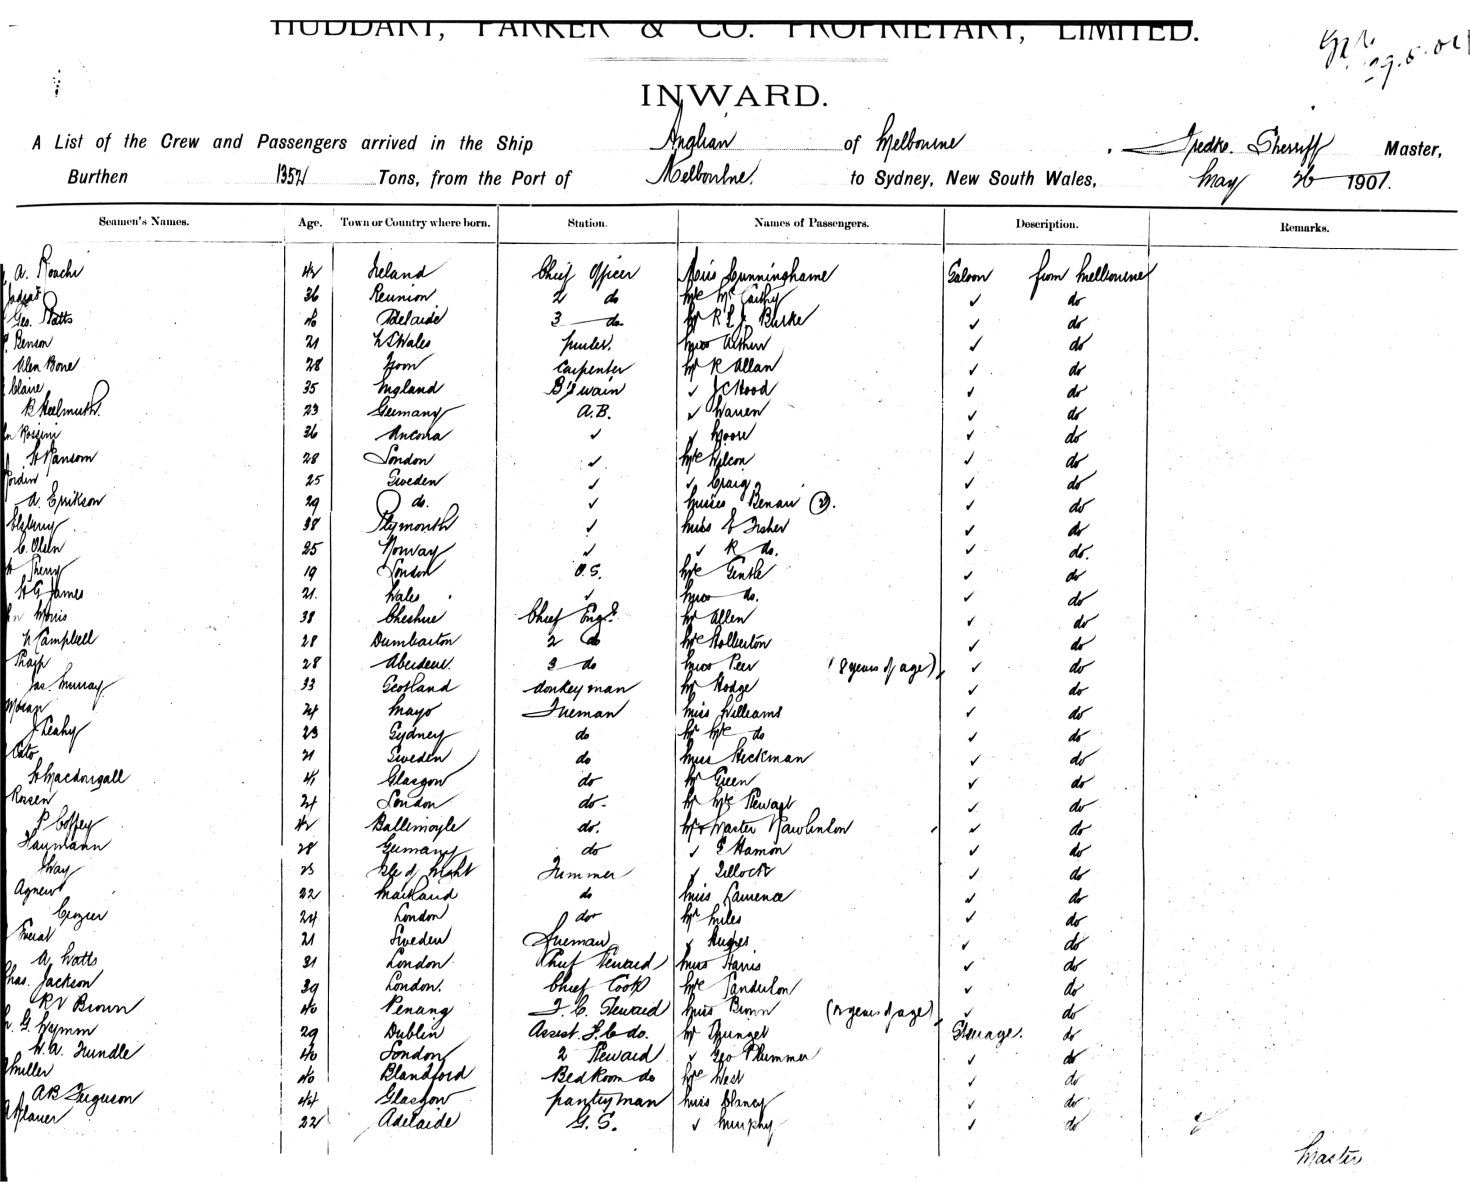 HUDDART, PARKER & CO. PROPRIETARY, LIMITED.
29.5.01
INWARD.
A List of the Crew and Passengers arrived in the Ship Anglian of Melbourne, Fredk. Sherriff Master,
Burthen 1352 Tons, from the Port of Melbourne. to Sydney, New South Wales, May 26 1901.
Seamen's Names. Age. Town or Country where born. Station. Names of Passengers. Description. Remarks.
A. Roach 42 Ireland Chief Officer Miss Cunninghame Saloon from Melbourne
36 Reunion 2 do Mrs McCarthy ✓ do
Geo. Watts Adelaide 3 do. Mr R L J Burke ✓ do
Benson 21 N S Wales purser. Miss Arthur ✓ do
Alex Bone 28 Carpenter Mr R Allan ✓ do
Claire 35 England B'swain ✓ J C Wood ✓ do
Helmuth. 23 Germany A.B. ✓ Warren ✓ do
Rossini 36 Ancona ✓ ✓ Moore ✓ do
H Ransom 28 London ✓ Mrs Wilson ✓ do
Jordin 25 Sweden ✓ ✓ Craig ✓ do
A. Erikson 29 do. ✓ Misses Benau (2). ✓ do
38 Plymouth ✓ Miss E Fisher ✓ do
C. Olsen 25 Norway ✓ ✓ R do. ✓ do.
19 London O.S. Mrs Gentle ✓ do
H G James 21. Wales ✓ Miss do. ✓ do
Morris 38 Cheshire Chief Engr. Mr Allen ✓ do
Campbell 28 Dumbarton 2 do Mrs Holberton ✓ do
Tharp 28 Aberdeen. 3 do Miss Peer (8 years of age), ✓ do
Jas. Murray 33 Scotland donkeyman Mr Hodge ✓ do
Moran 24 Mayo Fireman Miss Williams ✓ do
J Leahy 23 Sydney do Mr Mrs do ✓ do
Cato 21 Sweden do Miss Hickman ✓ do
H Macdougall 41 Glasgow do Mr Green ✓ do
Rosen 24 London do. Mr Mrs Stewart ✓ do
P Coffey 42 Ballimoyle do. Mr & Master Rawlinson ✓ do
Naumann 28 Germany do ✓ E Hamon ✓ do
Way 23 Isle of Wight Trimmer ✓ Tillock ✓ do
Agnew 22 Maitland do Miss Laurence ✓ do
Crozier 24 London do Mr Miles ✓ do
21 Sweden Fireman ✓ Hughes ✓ do
A. Watts 31 London Chief Steward Miss Harris ✓ do
Chas. Jackson 39 London. Chief Cook Mrs Sanderson ✓ do
R V Brown 40 Penang F. C. Steward Miss Brown (12 years of age), ✓ do
G. Wynn 29 Dublin Assist. F. C do. Mr Steerage. do
W. A. Trundle 40 London 2 Steward ✓ Geo Plummer ✓ do
Miller 40 Blandford Bedroom do Mrs West ✓ do
A B Ferguson 44 Glasgow pantryman Miss Clancy ✓ do
22 Adelaide G. S. ✓ Murphy ✓ do
Master